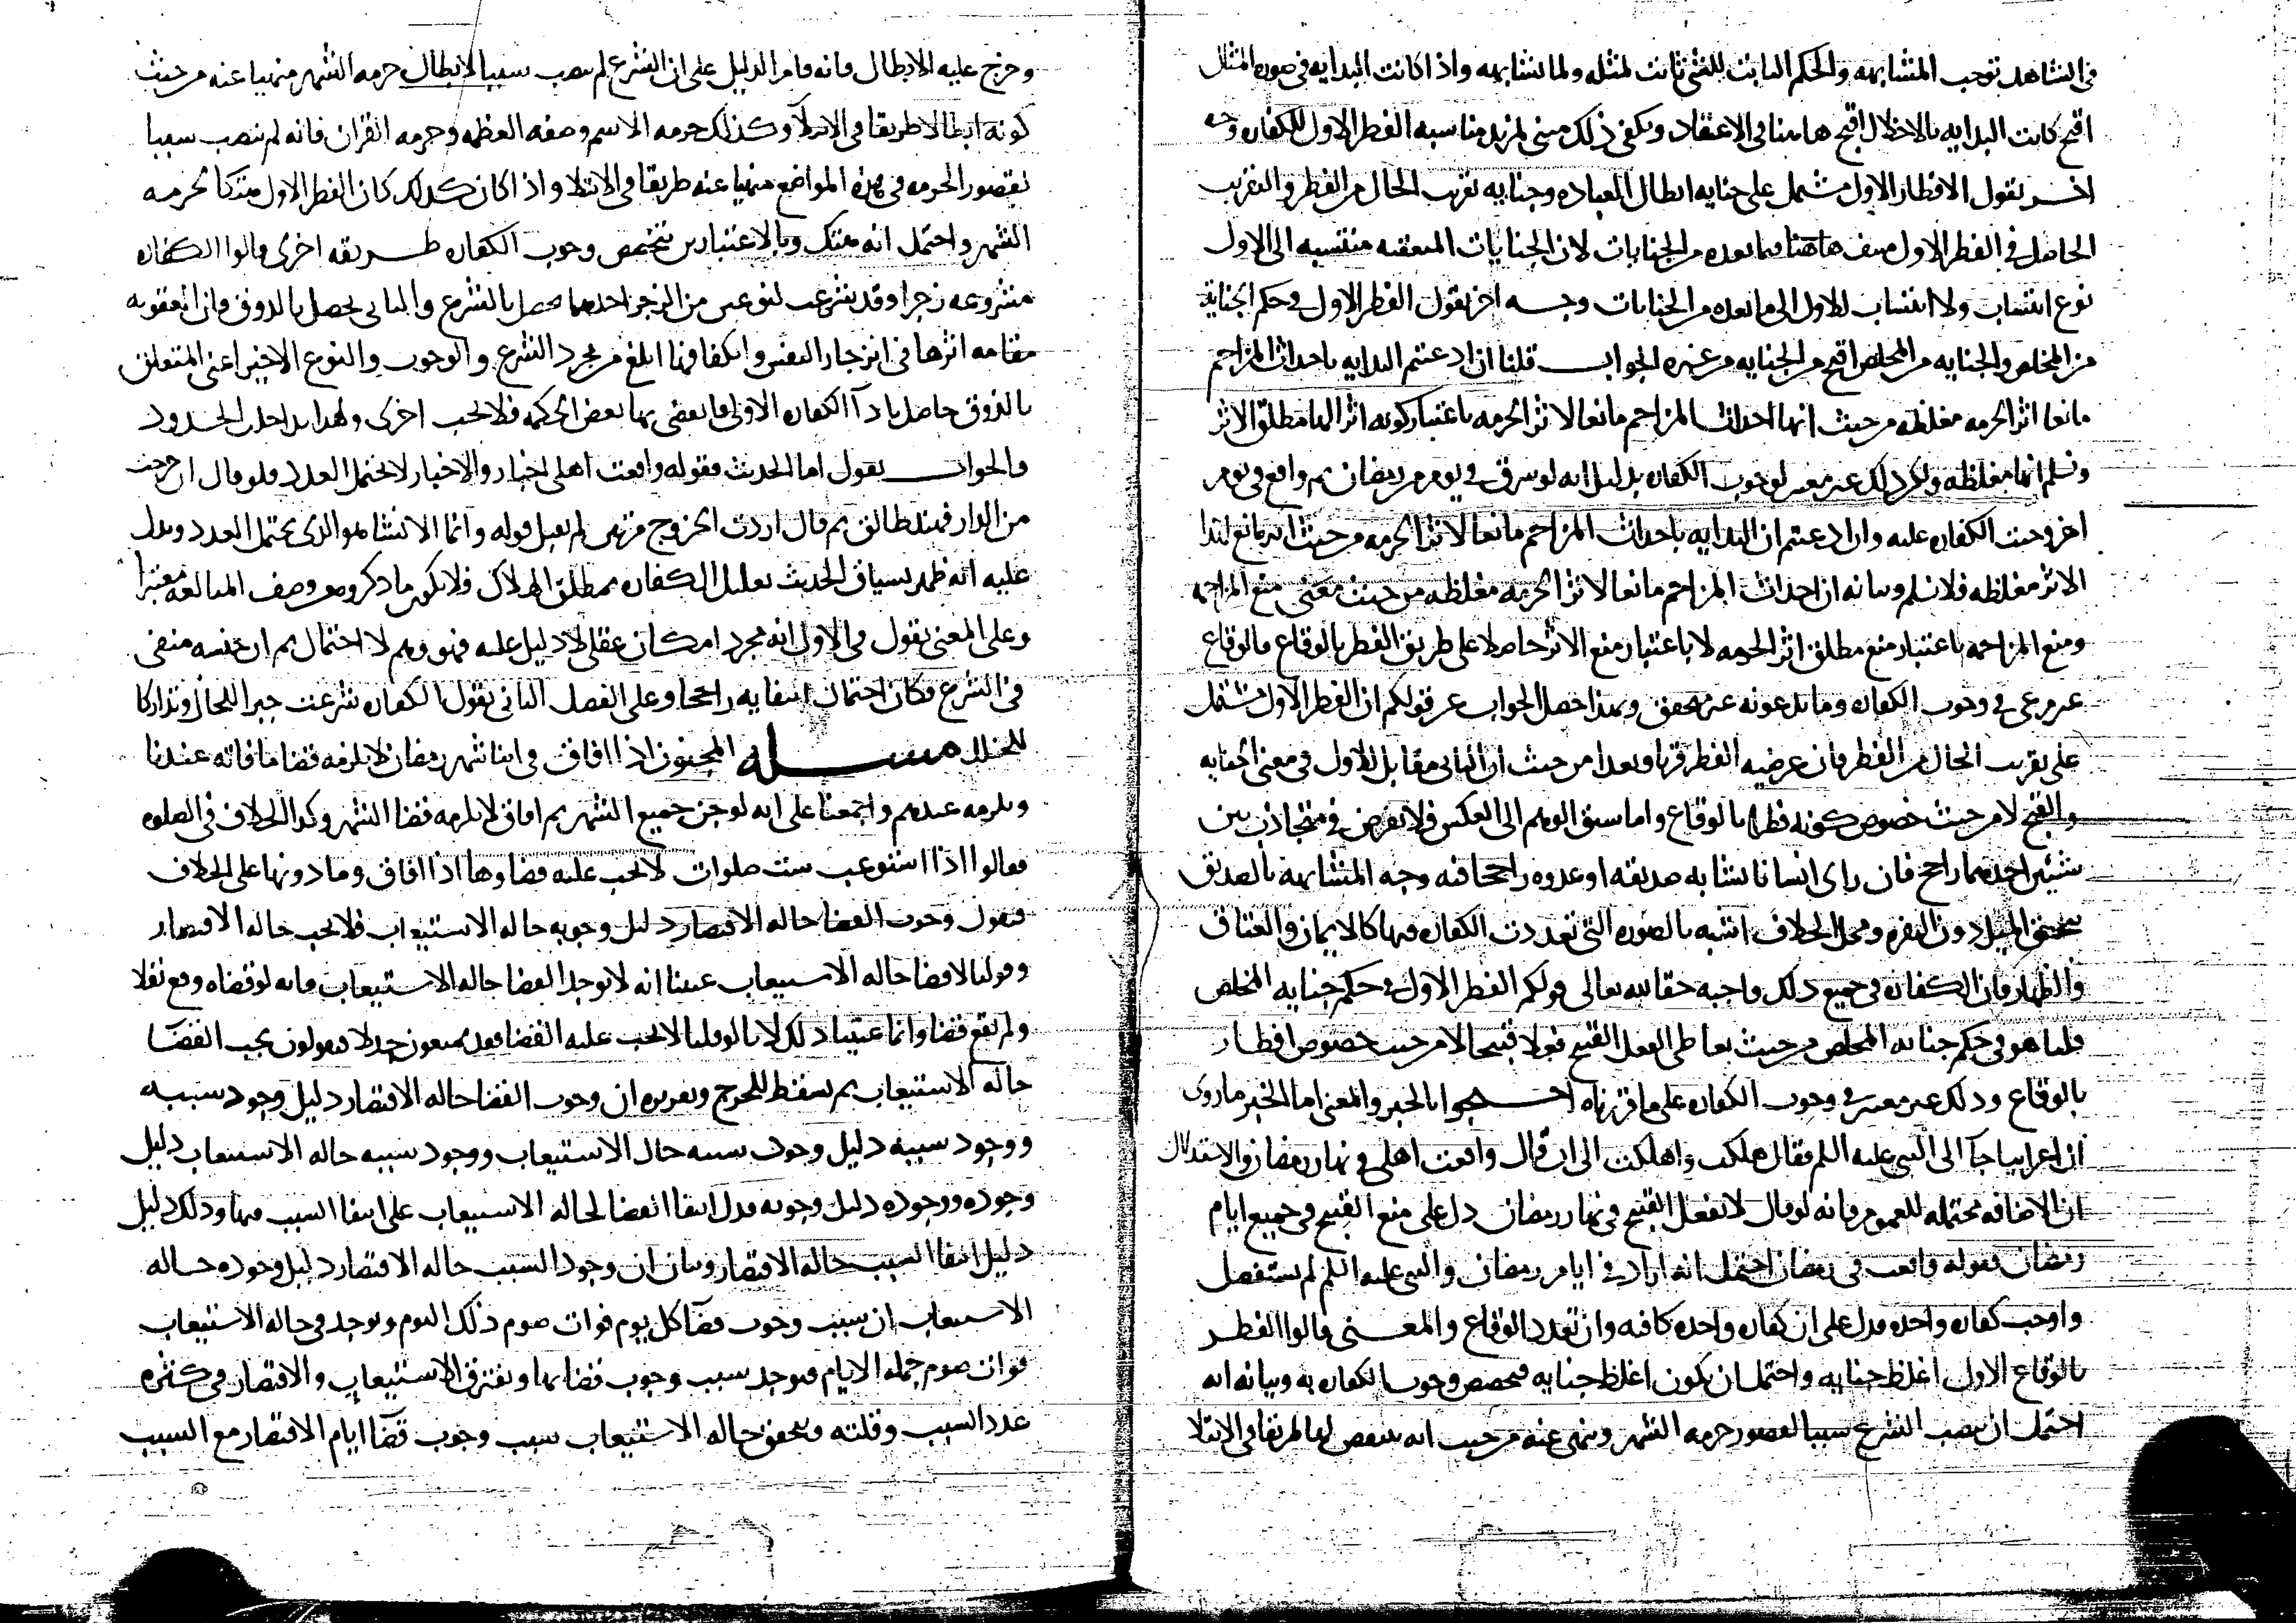 في الشاهد توجب المشابهه والحكم الثابت للشي ثابت لمثله ولما يشابهه واذا كانت البدايه في صوره المثال
اقبح كانت البدايه بالاخلال اقبح هاهنا في الاعتقاد ويكفي ذلك مبنى لمزيد مناسبه الفطر الاول للكفاره وجه
اخر نقول الافطار الاول مشتمل على جنايه ابطال العباده وجنايه تقريب الحال من الفطر والتقريب
الحاصل في الفطر الاول منتف هاهنا فيما بعده من الجنايات لان الجنايات المتعقبه منتسبه الى الاول
نوع انتساب ولا انتساب للاول الى ما بعده من الجنايات وجه اخر نقول الفطر الاول في حكم الجنايه
من المخلص والجنايه من المخلص اقبح من الجنايه من غيره الجواب قلنا ان ادعيتم البدايه باحداث المزاحم
مانعا اثر الحرمه مغلظه من حيث انها احداث المزاحم مانعا لاثر الحرمه باعتبار كونه اثرا لها مطلق الاثر
ونسلم انها مغلظه ولكن ذلك غير معتبر لوجوب الكفاره بدليل انه لو سرق في يوم من رمضان ثم واقع في يوم
اخر وجبت الكفاره عليه وان ادعيتم ان البدايه باحداث المزاحم مانعا لاثر الحرمه من حيث انه مانع لهذا
الاثر مغلظه فلا نسلم وبيانه ان احداث المزاحم مانعا لاثر الحرمه مغلظه من حيث معنى منع المزاحمه
ومنع المزاحمه باعتبار منع مطلق اثر الحرمه لا باعتبار منع الاثر حاصلا على طريق الفطر بالوقاع فالوقاع
غير مرعي في وجوب الكفاره وما تدعونه غير محقق وبهذا حصل الجواب عن قولكم ان الفطر الاول مشتمل
على تقريب الحال من الفطر فان عرضيه الفطر قربا وبعدا من حيث ان الثاني مقابل للاول في معنى الجنايه
والقبح لا من حيث خصوص كونه فطرا بالوقاع واما سبق الوهم الى العكس فلا يفرض في متجاذب بين
شيئين احدهما راجح فان راى انسانا يشابه صديقه او عدوه راجحا فيه وجه المشابهه بالصديق
يتحقق الميل دون النفره ومحل الخلاف اشبه بالصوره التي تعددت الكفاره فيها كالايمان والعتاق
والظهار فان الكفاره في جميع ذلك واجبه حقا لله تعالى قولكم الفطر الاول في حكم جنايه المخلص
قلنا هو في حكم جنايه المخلص من حيث تعاطي الفعل القبيح قبولا قبيحا لا من حيث خصوص افطار
بالوقاع وذلك غير معتبر في وجوب الكفاره على ما قررناه احتجوا بالخبر والمعنى اما الخبر ما روى
ان اعرابيا جآ الى النبي عليه السلم فقال هلكت واهلكت الى ان قال واقعت اهلي في نهار رمضان والاستدلال
ان الاضافه محتمله للعموم فانه لو قال لا تفعل القبيح في نهار رمضان دل على منع القبيح في جميع ايام
رمضان فقوله واقعت في رمضان احتمل انه اراد في ايام رمضان والنبي عليه السلم لم يستفصل
واوجب كفاره واحده فدل على ان كفاره واحده كافيه وان تعدد الوقاع والمعنى قالوا الفطر
بالوقاع الاول اغلظ جنايه واحتمل ان يكون اغلظ جنايه فيخصص وجوب الكفاره به وبيانه انه
احتمل ان ينصب الشرع سببا لقصور حرمه الشهر ونهي عنه من حيث انه ينقص لها طريقا في الابتلا
وخرج عليه الابطال فانه قام الدليل على ان الشرع لم ينصب سببا لابطال حرمه الشهر منهيا عنه من حيث
كونه ابطالا طريقا في الابتلآ وكذلك حرمه الاسم وصفه العظمه وحرمه القران فانه لم ينصب سببا
لقصور الحرمه في هذه المواضع منهيا عنه طريقا في الابتلا واذا كان كذلك كان الفطر الاول متدكا لحرمه
الشهر واحتمل انه متك وبالاعتبارين تتخصص وجوب الكفاره طريقه اخرى قالوا الكفاره
مشروعه زجرا وقد شرعت لنوعين من الزجر احدهما يحصل بالشرع والثاني يحصل بالذوق فان العقوبه
مقامه اثرها في انزجار النفس وانكفافها ابلغ من مجرد الشرع والوجوب والنوع الاخير اعني المتعلق
بالذوق حاصل بادآ الكفاره الاولى فانقضى بها بعض الحكمه فلا تجب اخرى ولهذا يتداخل الحدود
والجواب نقول اما الحديث فقوله واقعت اهلي اخبار والاخبار لا تحتمل العدد فلو قال ان خرجت
من الدار فهند طالق ثم قال اردت الخروج مرتين لم يقبل قوله وانما الانشا هو الذي يحتمل العدد ويدل
عليه انه ظهر بسياق الحديث تعليل الكفاره بمطلق الهلاك فلا يكون ما ذكروه من وصف المبالغه معتبرا
وعلى المعنى نقول في الاول انه مجرد امكان عقلي لا دليل عليه فهو وهم لا احتمال ثم ان جنسه منفي
في الشرع فكان احتمال انتفايه راجحا وعلى الفصل الثاني نقول الكفاره شرعت جبرا للحال وتداركا
للخلل مسله المجنون اذا افاق في اثنا شهر رمضان لا يلزمه قضا ما فاته عندنا
ويلزمه عندهم واجمعنا على انه لو جن جميع الشهر ثم افاق لا يلزمه قضا الشهر وكذا الخلاف في الصلوه
فقالوا اذا استوعب ست صلوات لا تجب عليه قضاوها اذا افاق وما دونها على الخلاف
فنقول وجوب القضا حاله الاقتصار دليل وجوبه حاله الاستيعاب فلا يجب حاله الاقتصار
وقولنا لا قضا حاله الاستيعاب عنينا انه لا يوجد القضا حاله الاستيعاب فانه لو قضاه وقع نفلا
ولم يقع قضا وانما عنينا ذلك لانا لو قلنا لا يجب عليه القضا فقد يمنعون جدلا فيقولون يجب القضآ
حاله الاستيعاب ثم يسقط للحرج وتقريره ان وجوب القضا حاله الاقتصار دليل وجود سببه
ووجود سببه دليل وجود سببه حال الاستيعاب ووجود سببه حاله الاستيعاب دليل
وجوده ووجوده دليل وجوبه فدل انتفا القضا لحاله الاستيعاب على انتفا السبب فيها وذلك دليل
دليل انتفا السبب حاله الاقتصار وبيان ان وجود السبب حاله الاقتصار دليل وجوده حاله
الاستيعاب ان سبب وجوب قضآ كل يوم فوات صوم ذلك اليوم ويوجد في حاله الاستيعاب
فوات صوم جمله الايام فيوجد سبب وجوب قضايها ويفترق الاستيعاب والاقتصار في كثره
عدد السبب وقلته ويتحقق حاله الاستيعاب سبب وجوب قضآ ايام الاقتصار مع السبب